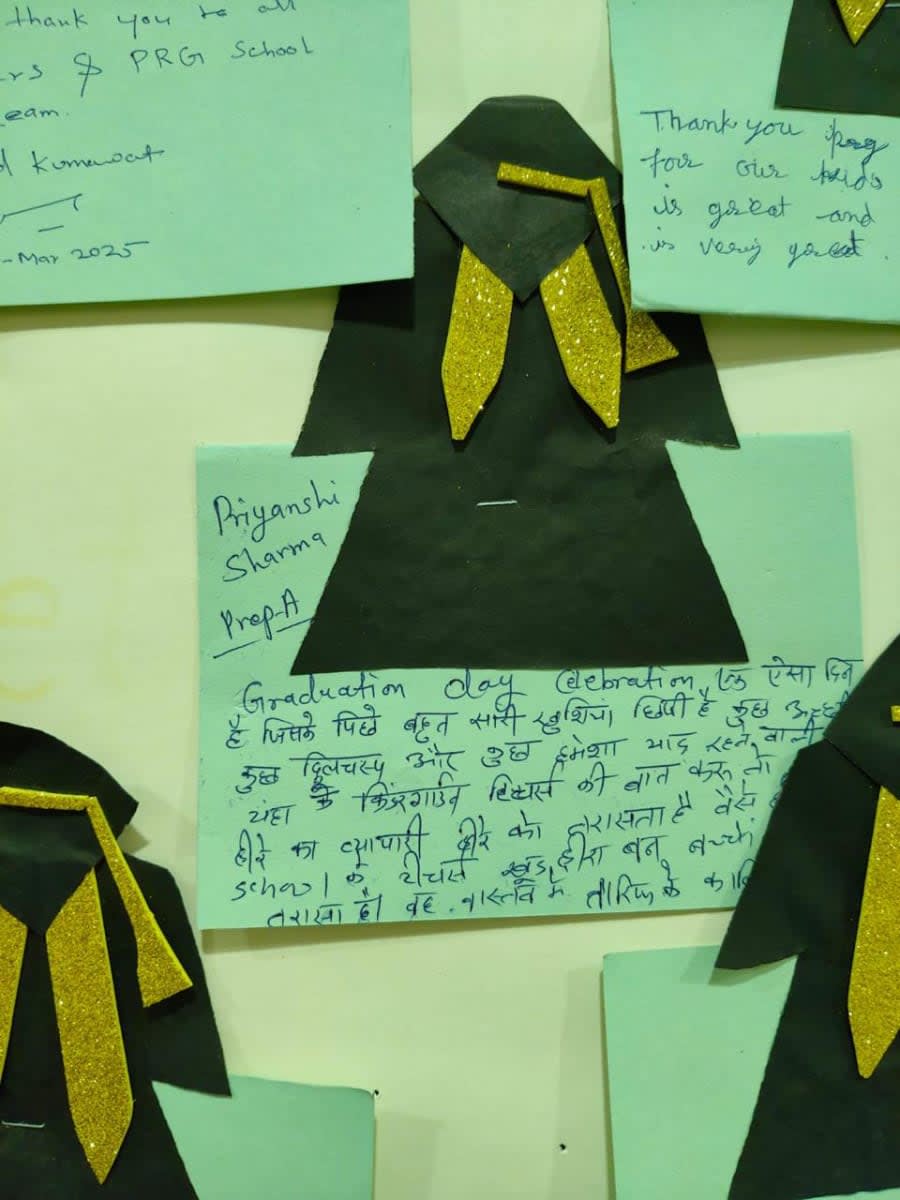 thank you to all
rs & PRG School
eam.
Kumawat
-Mar 2025
Thank you prg
for our kids
is great and
is very great.
Priyanshi
Sharma
Prep-A
Graduation day Celebration एक ऐसा दिन
है जिसके पिछे बहुत सारी खुशियां छिपी है कुछ अच्छी
कुछ दिलचस्प और कुछ हमेशा याद रहने वाली
यंहा के किंडरगार्डन टिचर्स की बात करू तो
हीरे का व्यापारी हीरे को तरासता है वैसे
school के टीचर्स खुद हीरा बन बच्चों
तरासा है। वह वास्तव में तारिफ के काबि